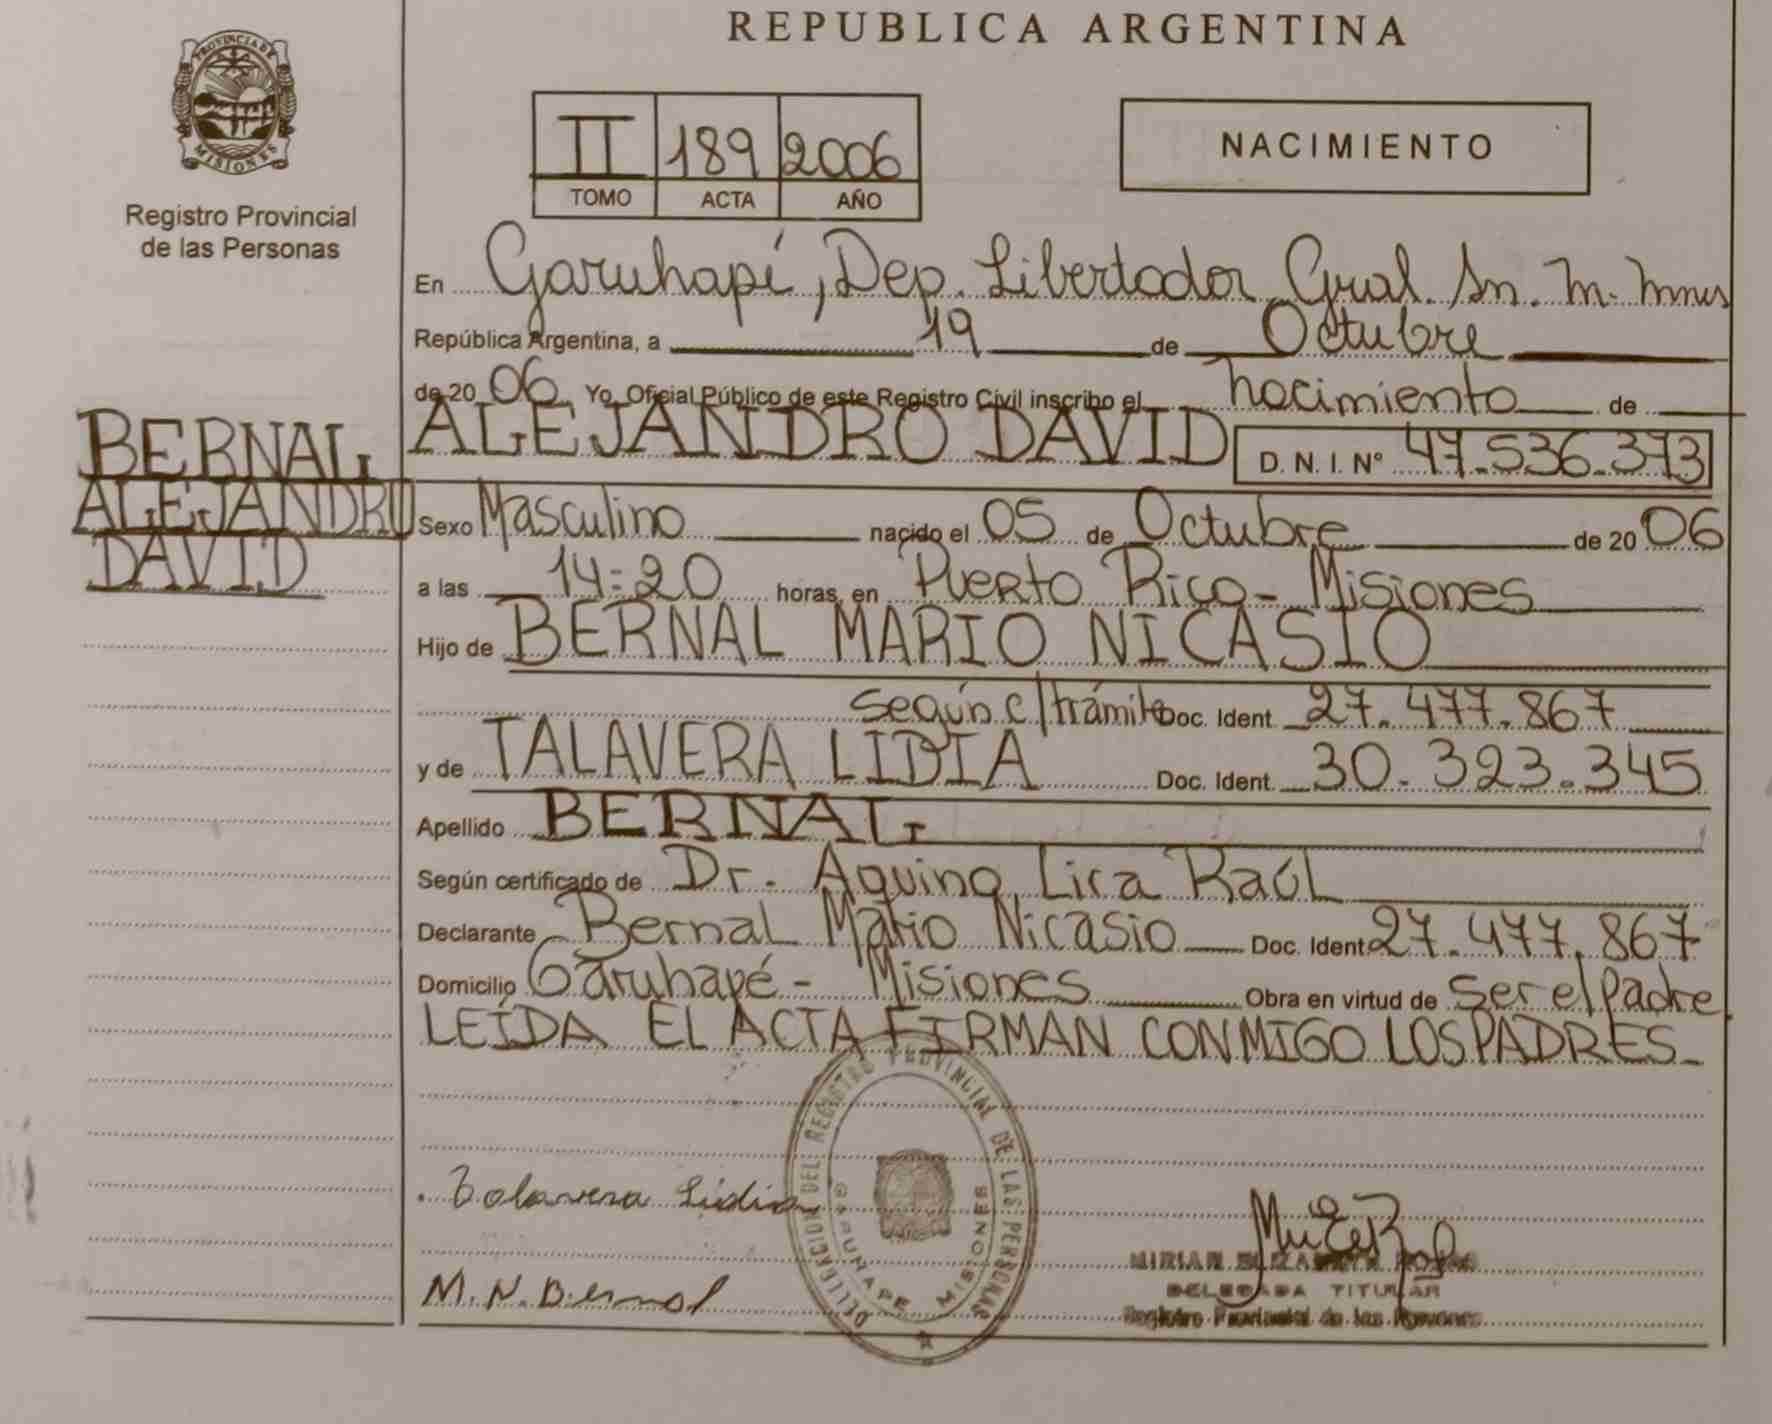 REPUBLICA ARGENTINA
PROVINCIA DE
MISIONES
Registro Provincial
de las Personas
II 189 2006
TOMO ACTA AÑO
NACIMIENTO
En Garuhapé, Dep. Libertador Gral. Sn. M. Mnes
República Argentina, a 19 de Octubre
de 2006 Yo, Oficial Público de este Registro Civil inscribo el nacimiento de
BERNAL
ALEJANDRO
DAVID
ALEJANDRO DAVID D. N. I. Nº 47.536.373
Sexo Masculino nacido el 05 de Octubre de 2006
a las 14:20 horas, en Puerto Rico - Misiones
Hijo de BERNAL MARIO NICASIO
según c/trámite Doc. Ident. 27.477.867
y de TALAVERA LIDIA Doc. Ident. 30.323.345
Apellido BERNAL
Según certificado de Dr. Aquino Lira Raúl
Declarante Bernal Mario Nicasio Doc. Ident. 27.477.867
Domicilio Garuhapé - Misiones Obra en virtud de ser el Padre
LEÍDA EL ACTA FIRMAN CONMIGO LOS PADRES
DELEGACION DEL REGISTRO PROVINCIAL DE LAS PERSONAS
GARUHAPE MISIONES
Talavera Lidia
M.N. Bernal
MIRIAN ELIZABETH ROJAS
DELEGADA TITULAR
Registro Provincial de las Personas